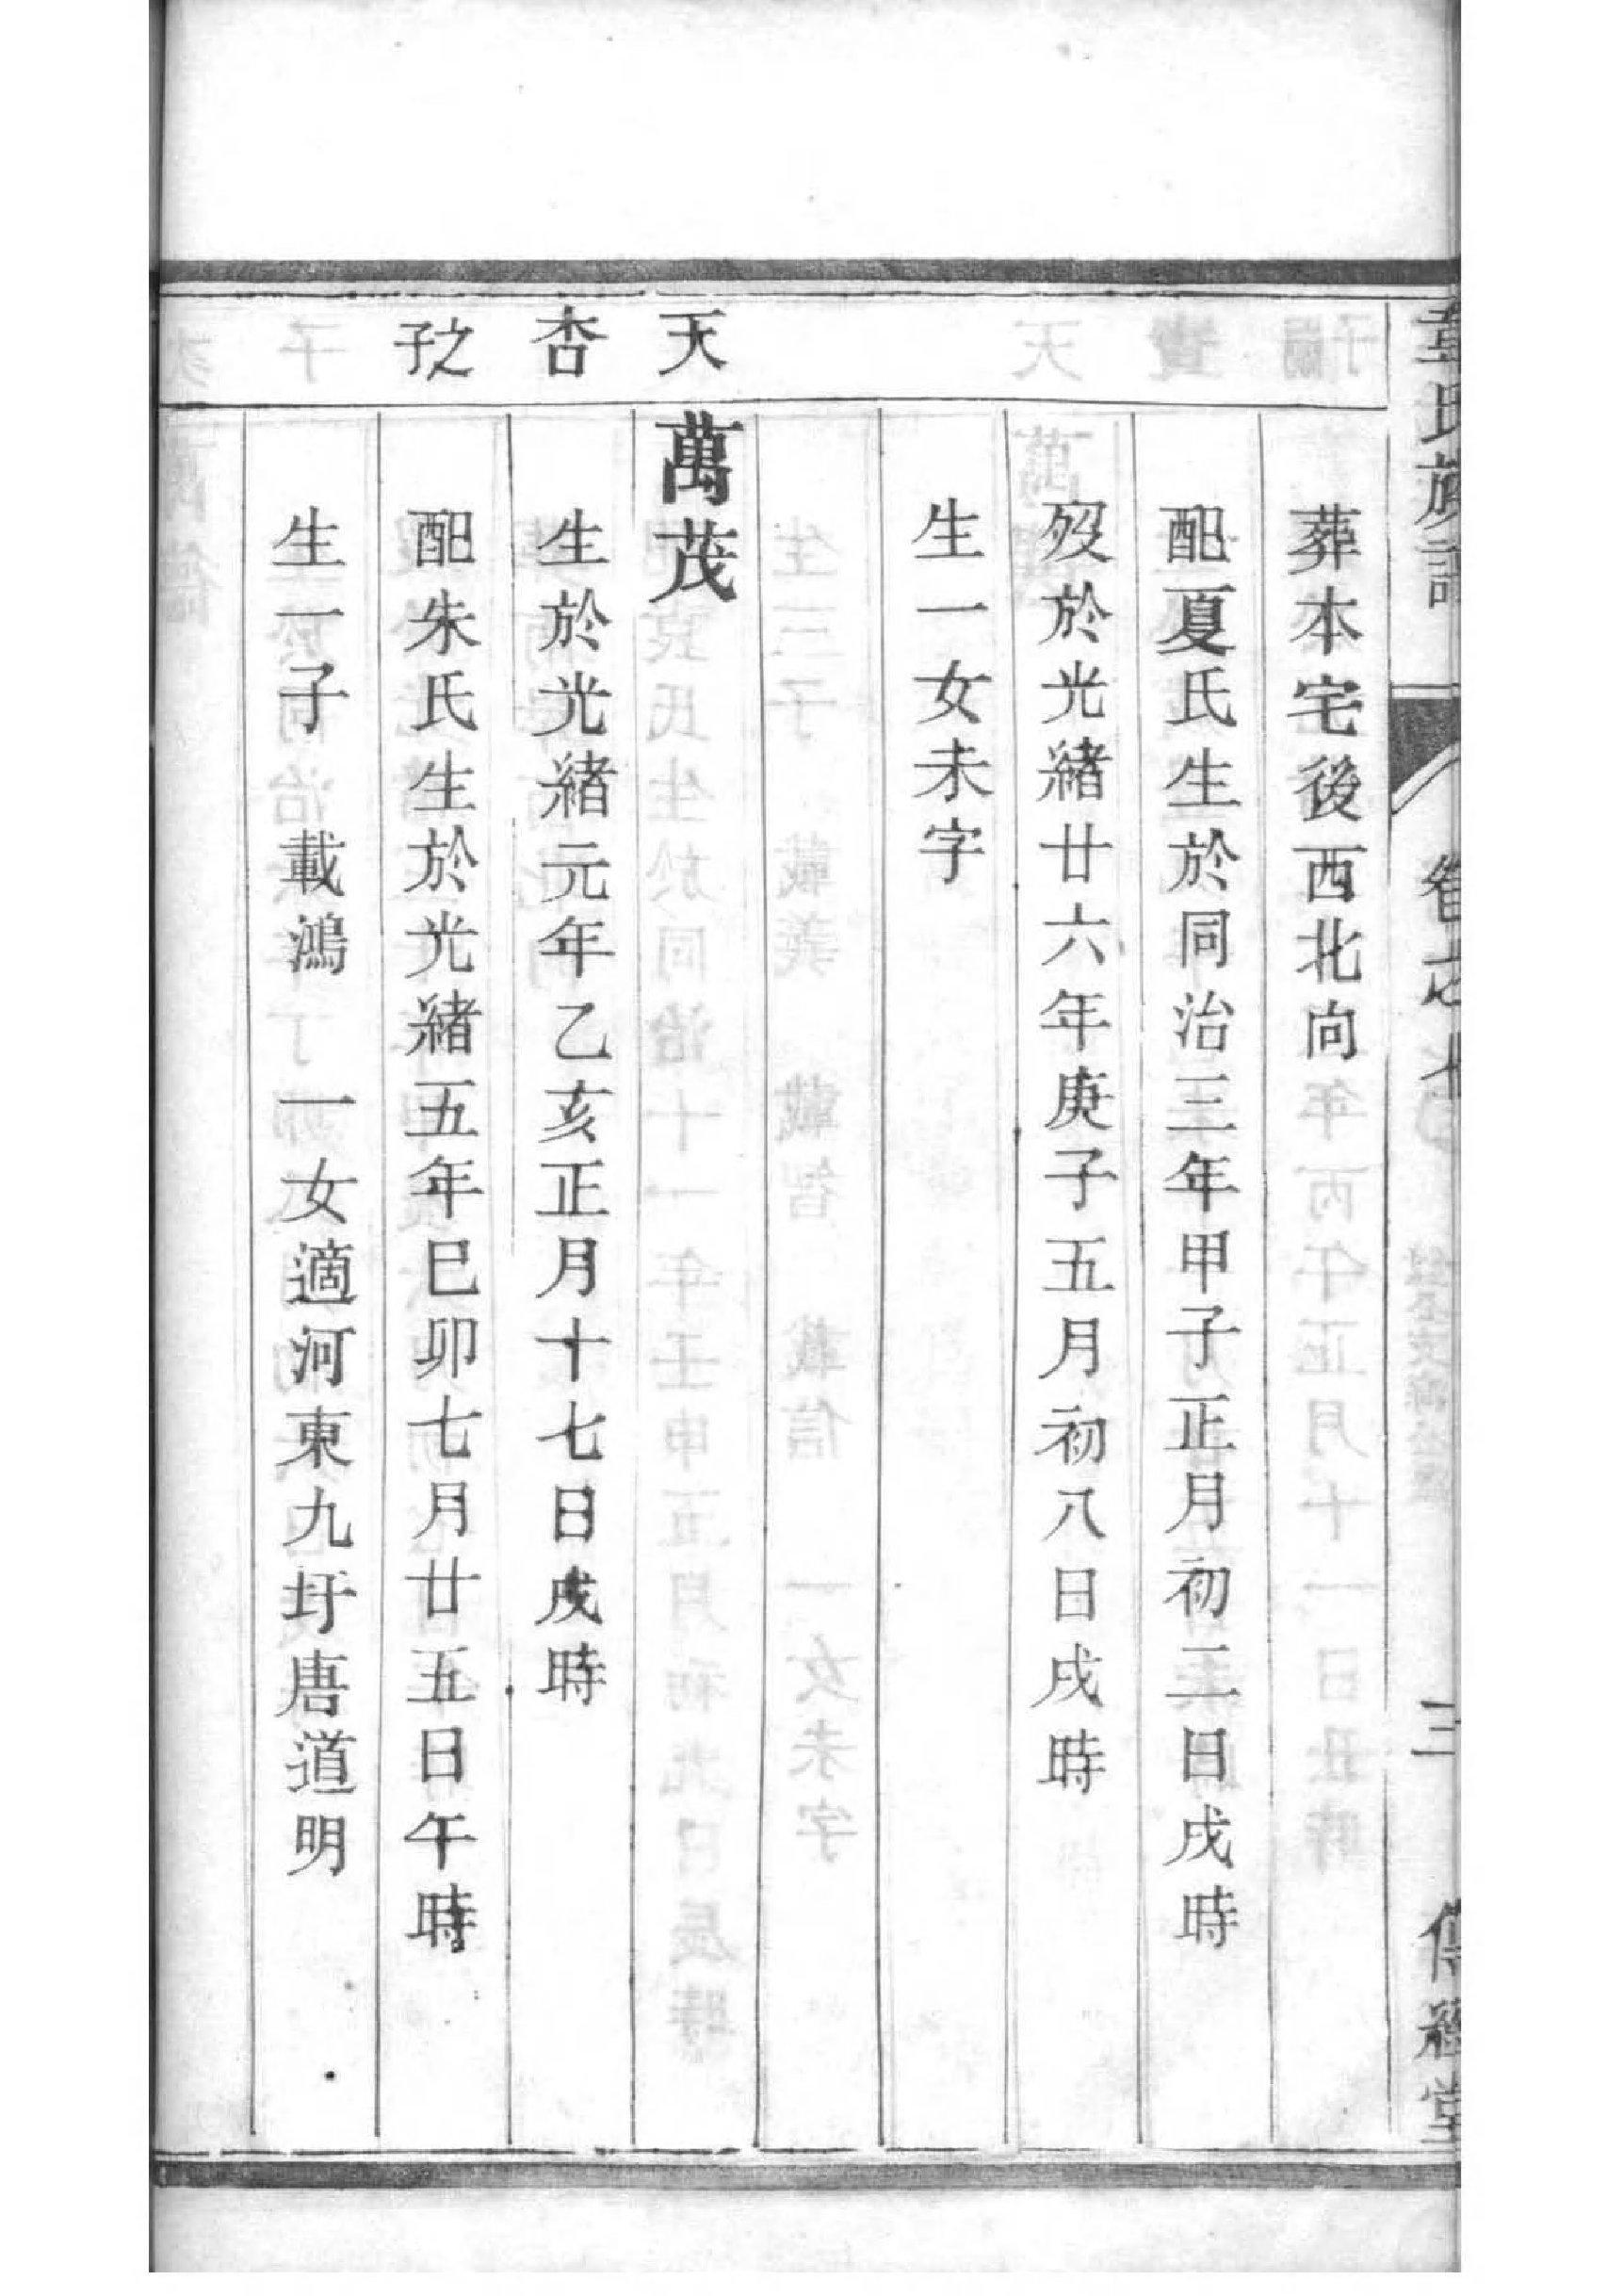 韋氏族譜
卷之七
三
傳經堂
葬本宅後西北向
配夏氏生於同治三年甲子正月初二日戌時
歿於光緒廿六年庚子五月初八日戌時
生一女未字
天 萬茂
杏 生於光緒元年乙亥正月十七日戌時
之子 配朱氏生於光緒五年巳卯七月廿五日午時
生一子 載鴻 一女適河東九圩唐道明